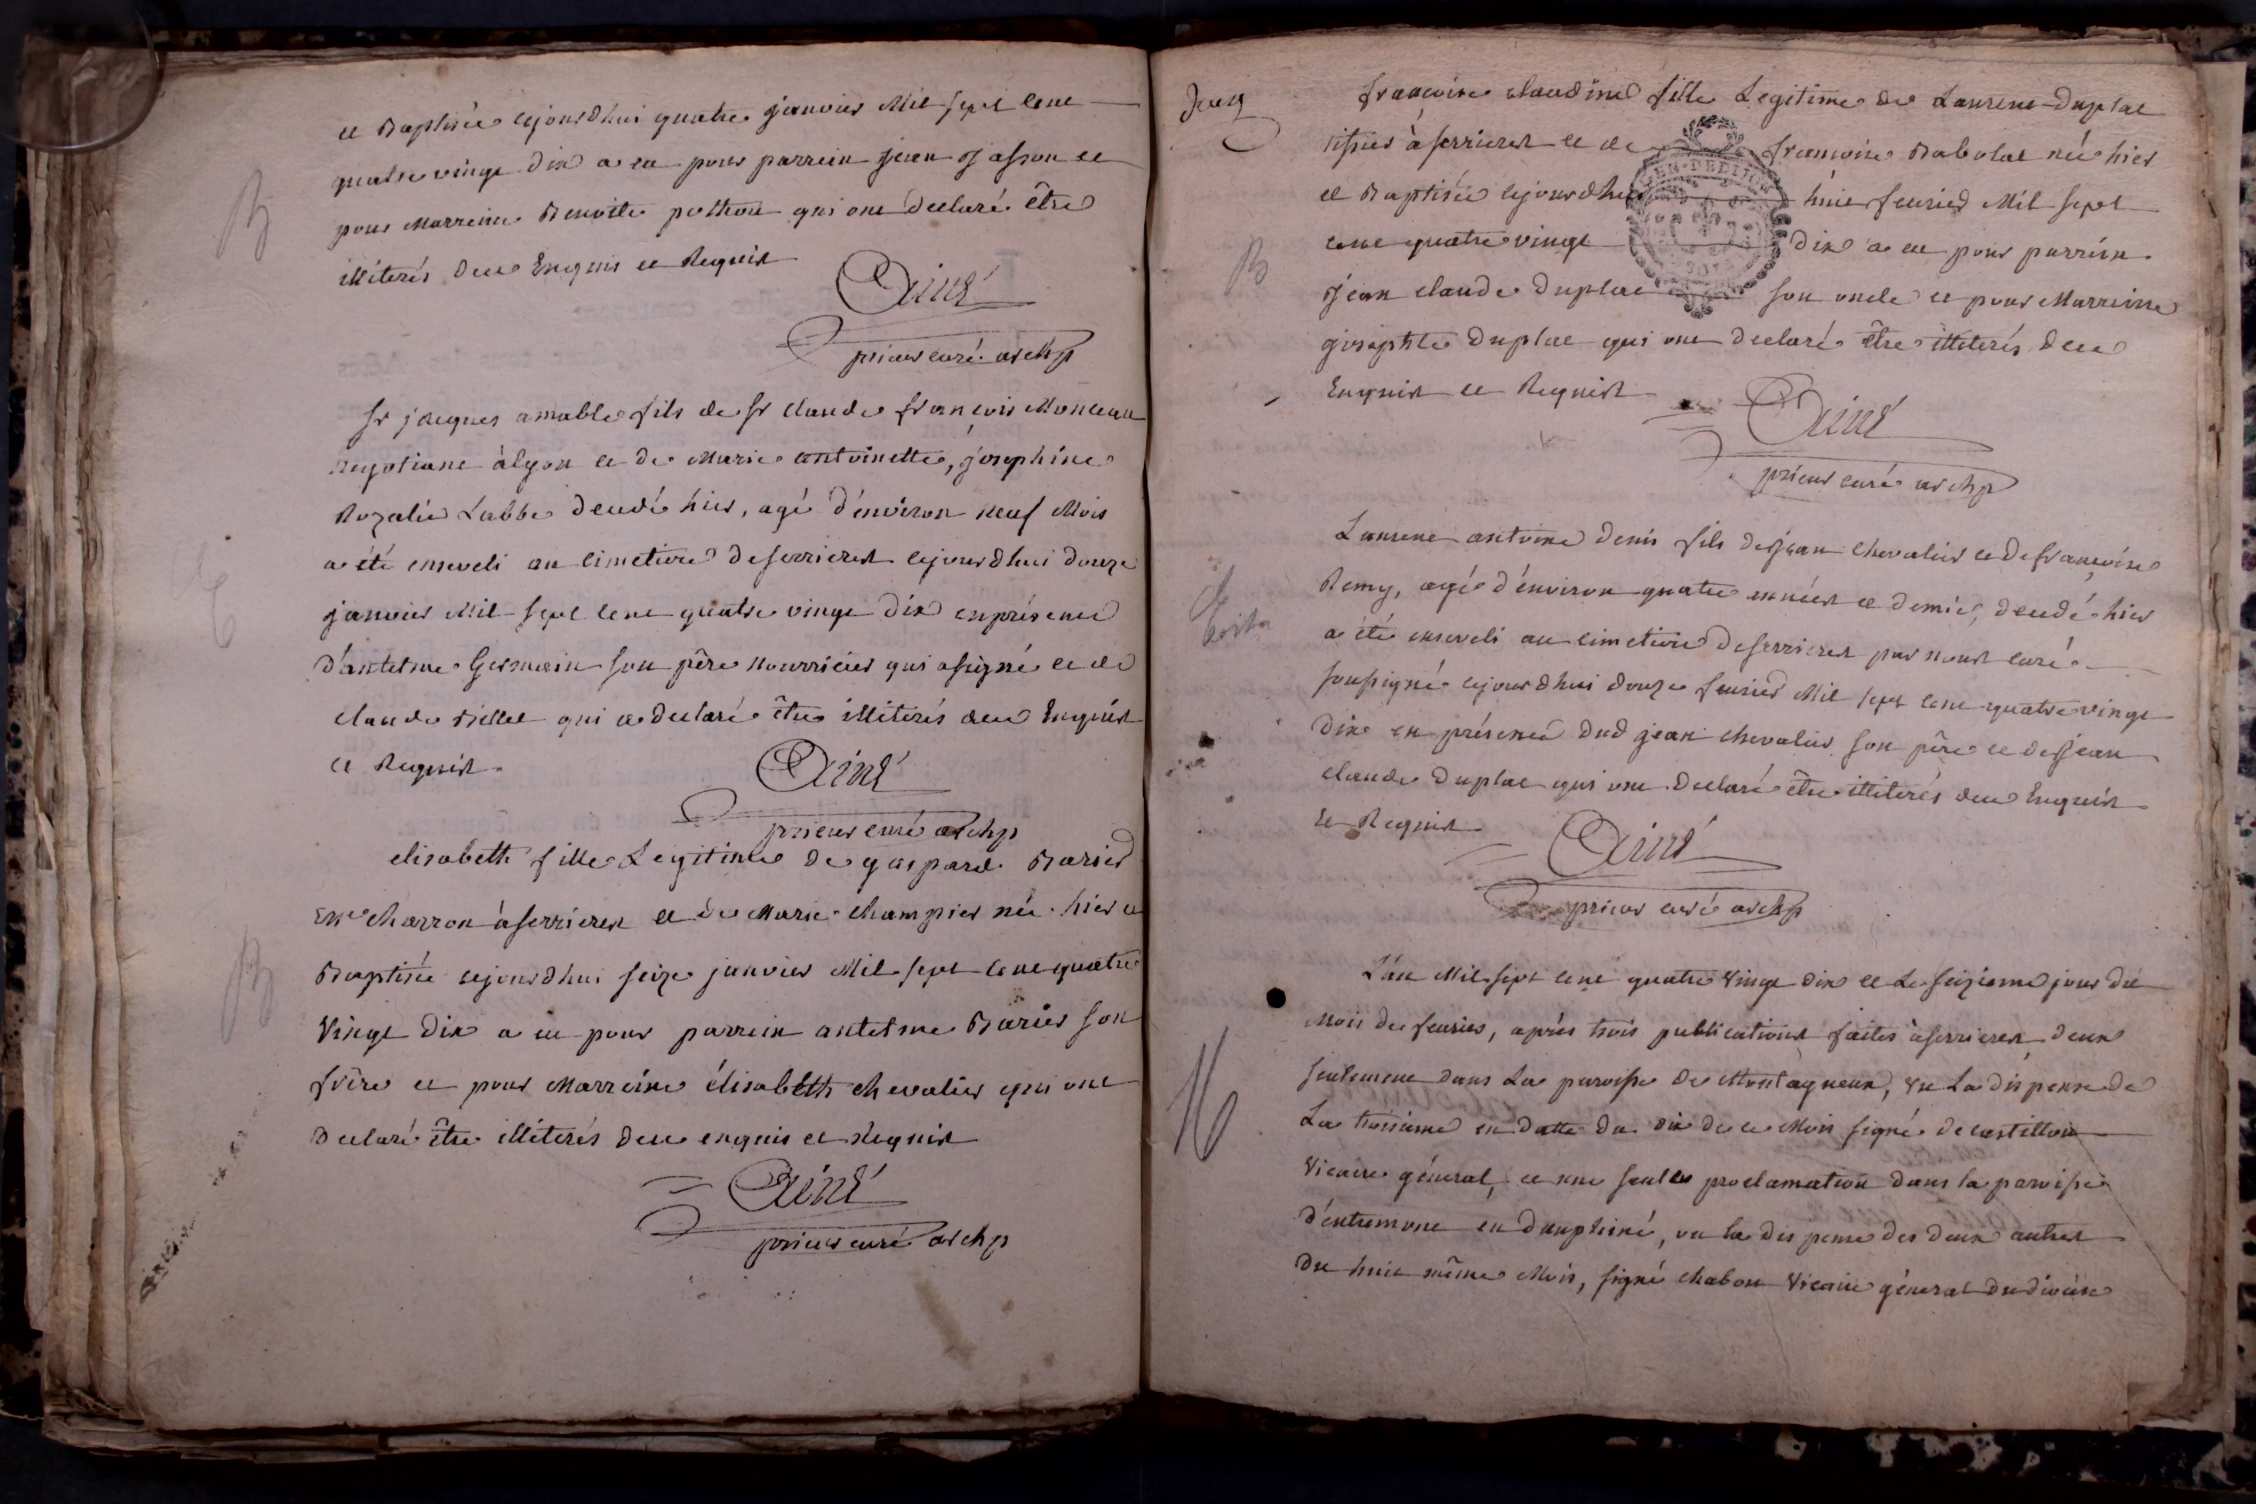 et Baptisée cejourdhui quatre janvier Mil sept cent
quatre vingt dix a eu pour parrein jean jasson et
pour Marreine Benoite pothon qui ont declaré être
illiterés deue Enquis et Requis
Ainé
prieur curé archp
B
Sr jacques amable fils de Sr claude françois Monceau
negotiant à lyon et de Marie antoinette, josephine
Rozalie Labbe decedé hier, agé d'environ neuf Mois
a été enseveli au cimetiere deserrieres cejourdhui douze
janvier Mil sept cent quatre vingt dix enprésence
d'antelme Germain son père nourricier qui asigné et de
claude Billet qui a declaré être illiterés deue Enquis
et Requis
Ainé
prieur curé archp
elisabeth fille Legitime de gaspard Barier
Me charron àserrieres et de Marie champier née hier et
B
Baptisée cejourdhui seize janvier Mil sept cent quatre
Vingt dix a eu pour parrein antelme Barier son
frère et pour Marreine élisabeth chevalier qui ont
declaré être illiterés deue enquis et Requis
Ainé
prieur curé archp
françoise claudine fille Legitime de Laurent Duplat
tissier àserrieres et de françoise Rabolat née hier
et Baptisée cejourdhui huit fevrier Mil sept
cent quatre vingt dix a eu pour parrein
B
jean claude Duplat son oncle et pour Marreine
josephte Duplat qui ont declaré être illiterés deue
Enquis et Requis
Ainé
prieur curé archp
Laurent antoine denis fils dejean chevalier et defrançoise
Remy, agé d'environ quatre années et demie, decedé hier
a été enseveli au cimetiere deserrieres par nous curé
soussigné cejourdhui douze fevrier Mil sept cent quatre vingt
dix en présence dud jean chevalier son père et dejean
claude Duplat qui ont declaré être illiterés deue Enquis
et Requis
Ainé
prieur curé archp
L'an Mil sept cent quatre Vingt dix et Le seizieme jour du
Mois de fevrier, après trois publications faites àserrieres, deux
seulement dans La paroisse de Montagneux, vu La dispense de
M
La troisieme en datte du dix de ce Mois signé decastillon
Vicaire général, et une seule proclamation dans la paroisse
d'entremont en dauphiné, vu la dispense des deux autres
du huit même Mois, signé chabon Vicaire géneral dudiocèse